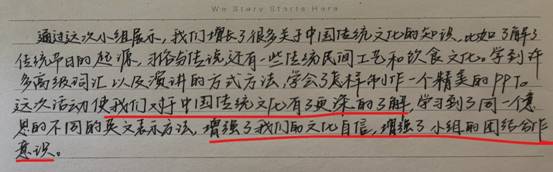 We Story Starts Here
通过这次小组展示，我们增长了很多关于中国传统文化的知识，比如了解了
传统节日的起源，习俗与传说还有一些传统民间工艺和饮食文化。学到许
多高级词汇以及演讲的方式方法，学会了怎样制作一个精美的PPT。
这次活动使我们对于中国传统文化有了更深的了解，学习到了同一个意
思的不同的英文表示方法，增强了我们的文化自信，增强了小组的团结合作
意识。